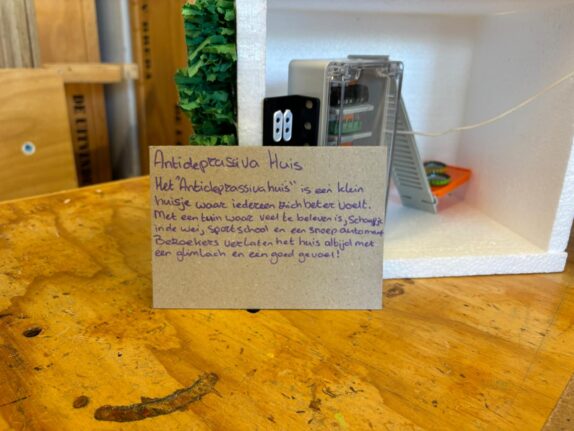 Antidepressiva Huis
Het "Antidepressiva huis" is een klein
huisje waar iedereen zich beter voelt.
Met een tuin waar veel te beleven is, Schaapje
in de wei, sportschool en een snoep automaat
Bezoekers verlaten het huis altijd met
een glimlach en een goed gevoel!